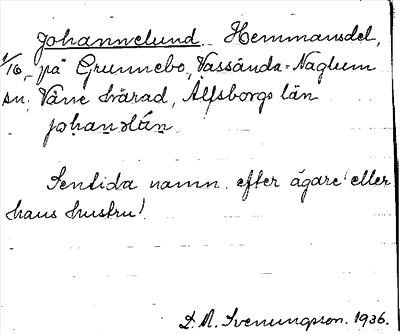 Johannelund. Hemmansdel,
1/16, på Grunnebo, Vassända-Naglum
sn, Väne härad, Älfsborgs län
johanälán
Sentida namn. efter ägare eller
hans hustru!
D. A. Svenungsson. 1936.